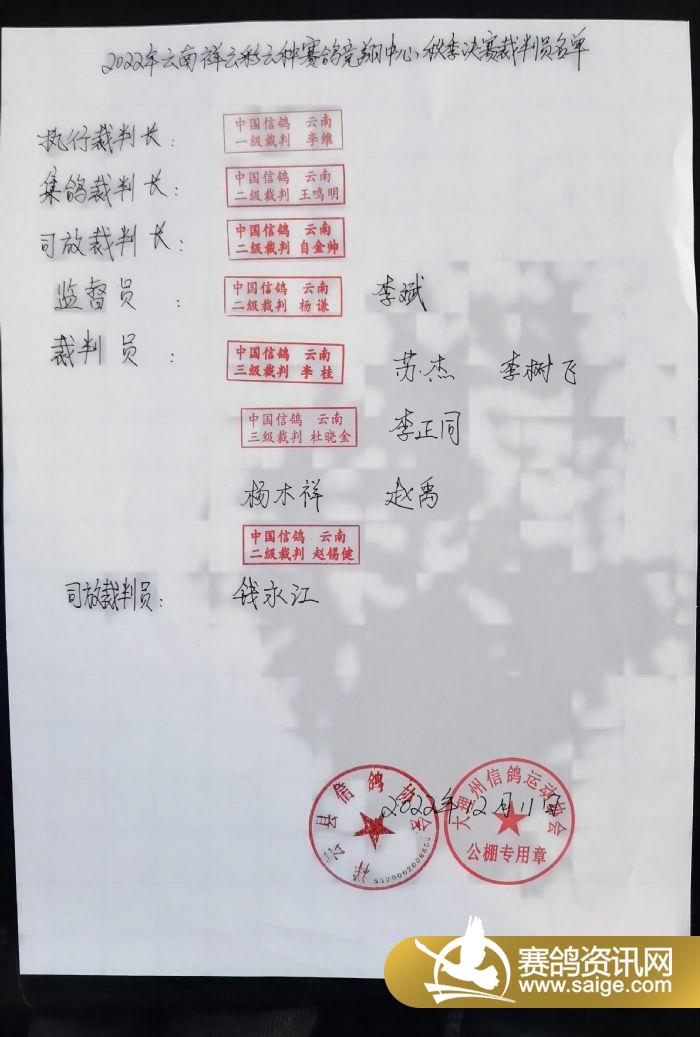 2022年云南祥云彩云种赛鸽竞翔中心秋季决赛裁判员名单
执行裁判长: 中国信鸽 云南
一级裁判 李维
集鸽裁判长: 中国信鸽 云南
二级裁判 王鸣明
司放裁判长: 中国信鸽 云南
二级裁判 自金帅
监督员: 中国信鸽 云南
二级裁判 杨谦 李斌
裁判员: 中国信鸽 云南
三级裁判 李桂 苏杰 李树飞
中国信鸽 云南
三级裁判 杜晓金 李正同
杨木祥 赵禹
中国信鸽 云南
二级裁判 赵锡健
司放裁判员: 钱永江
祥云县信鸽协会
大理州信鸽运动协会
公棚专用章
2022年12月11日
赛鸽资讯网
www.saige.com